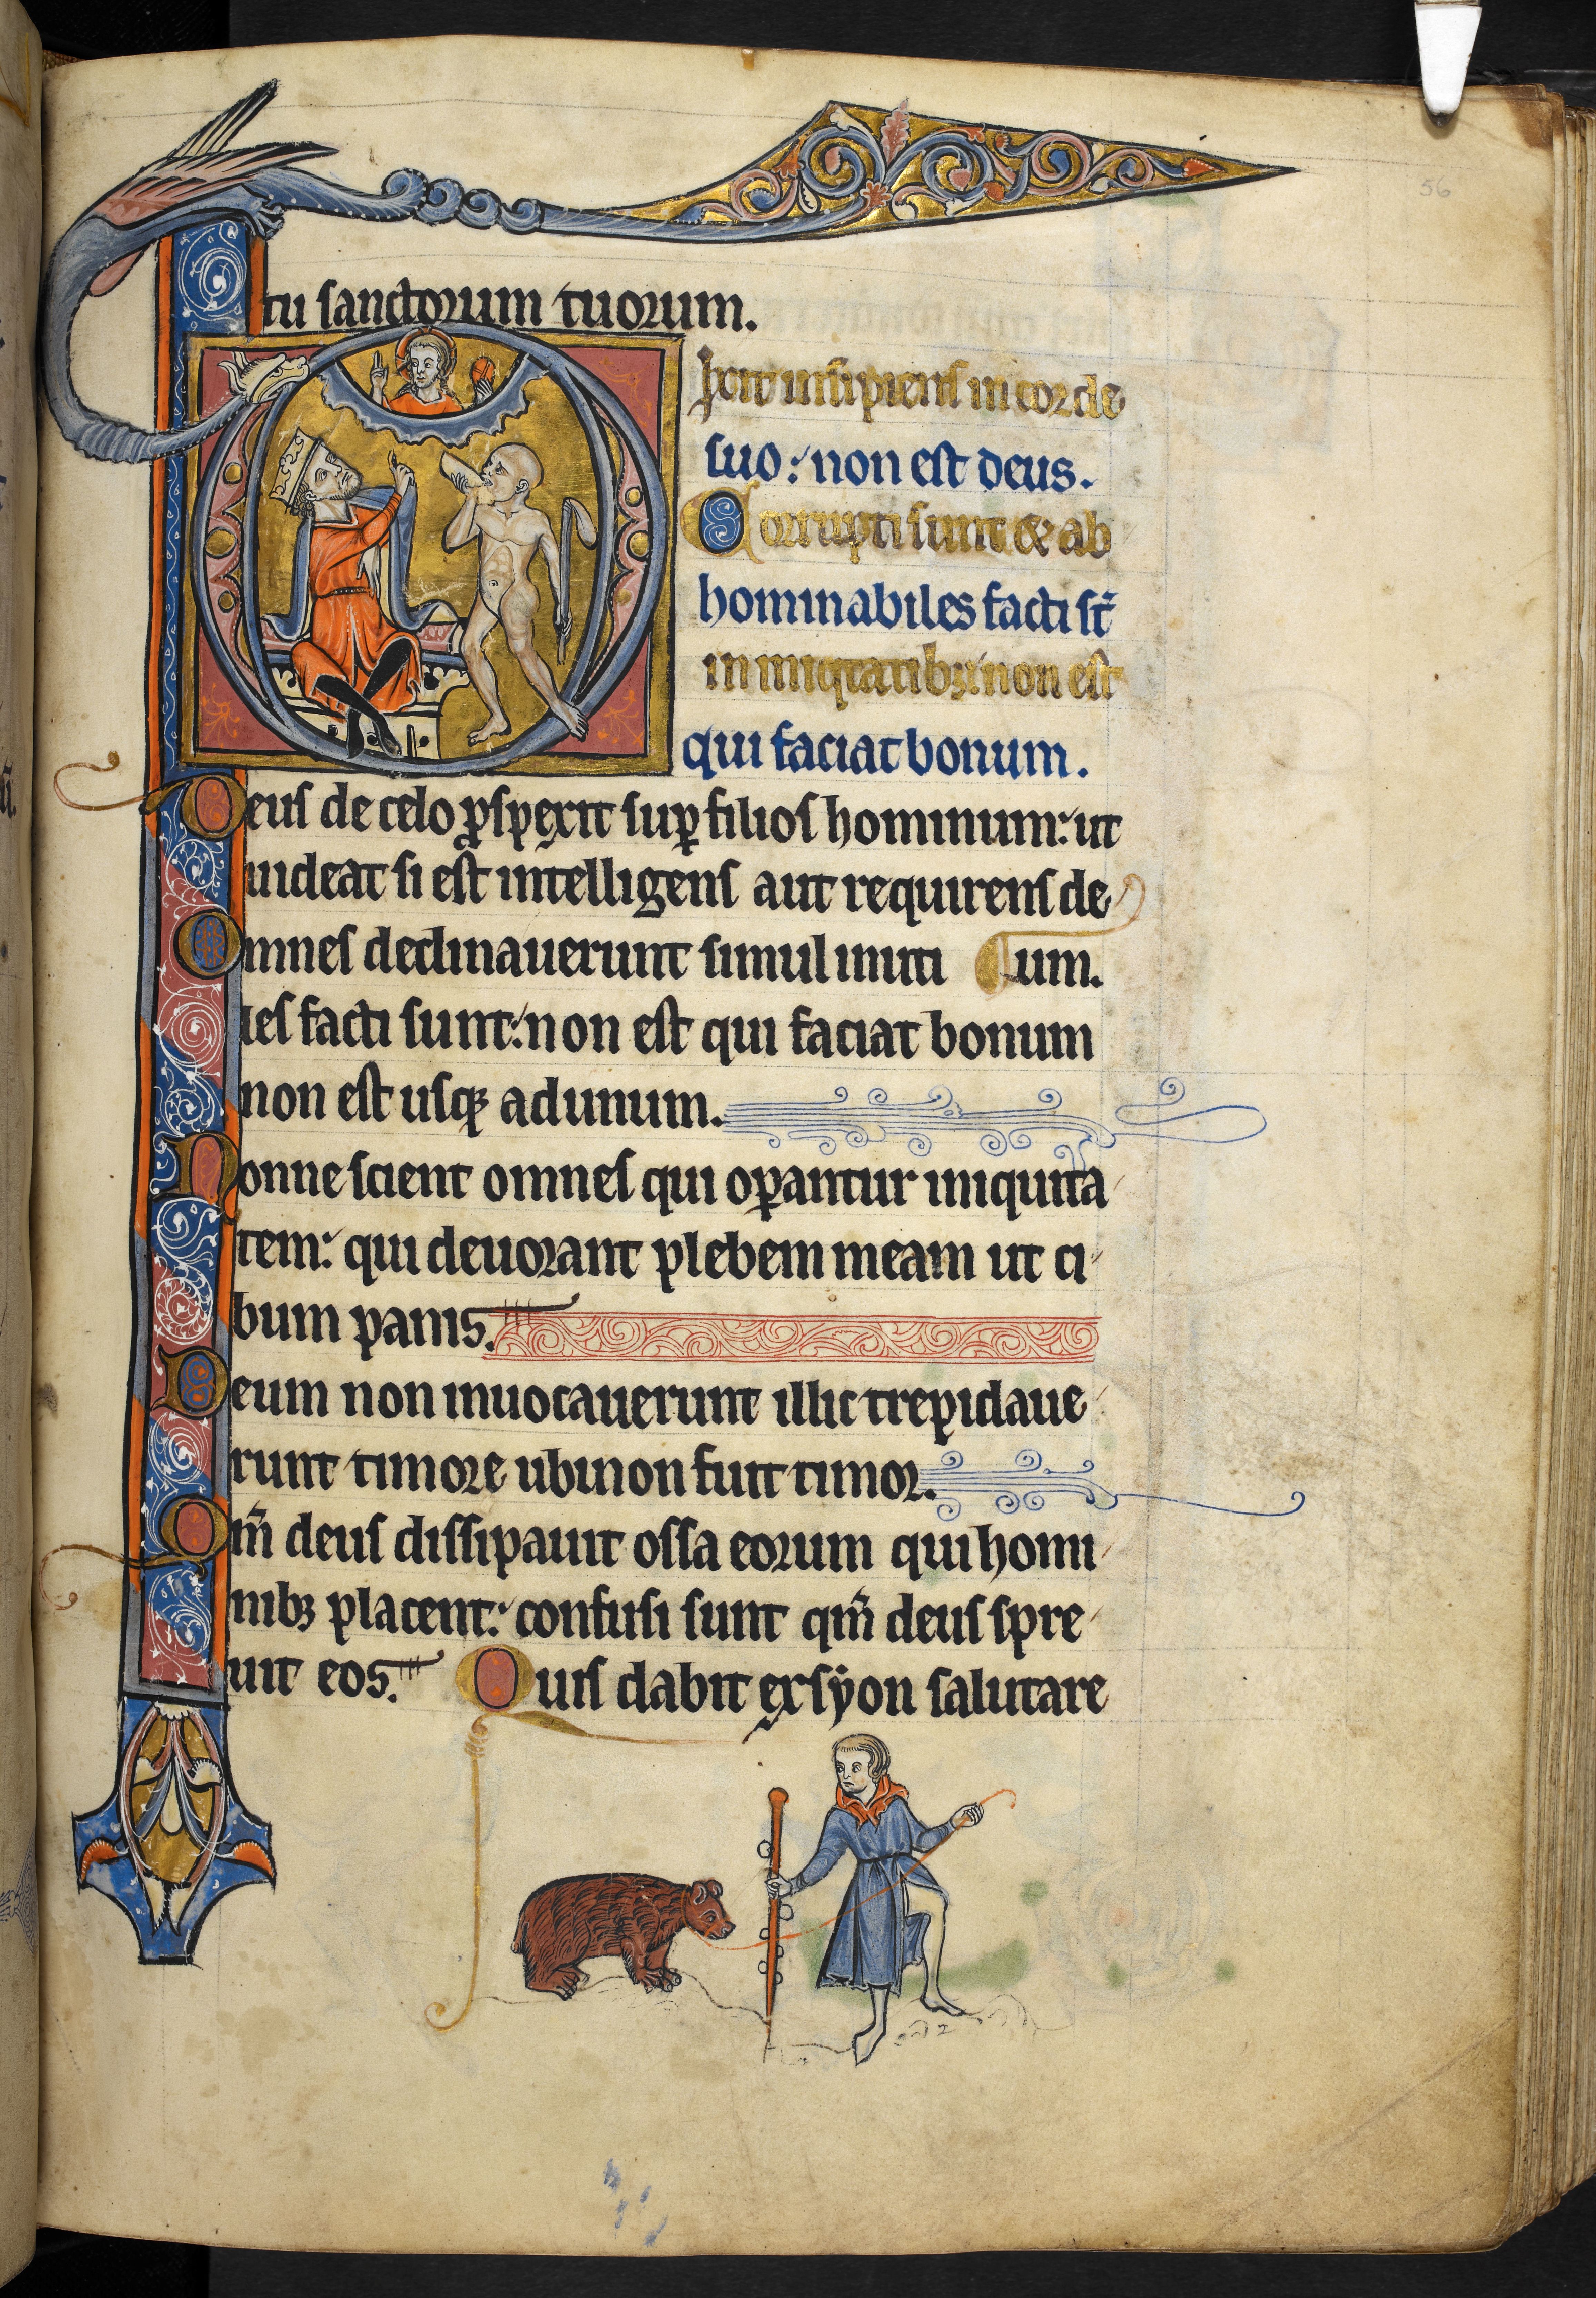 56
tu sanctorum tuorum.
Dixit insipiens in corde
suo: non est deus.
Corrupti sunt & ab
hominabiles facti st̄
in iniqitatibꝫ: non est
qui faciat bonum.
Deus de celo ꝓspexit suꝑ filios hominum: ut
uideat si est intelligens aut requirens de
Omnes declinauerunt simul inuti um.
les facti sunt: non est qui faciat bonum
non est usqꝫ ad unum.
Nonne scient omnes qui oꝑantur iniquita
tem: qui deuorant plebem meam ut ci
bum panis.
Deum non inuocauerunt illic trepidaue
runt timore ubi non fuit timor.
Qm̄ deus dissipauit ossa eorum qui homi
nibꝫ placent: confusi sunt qm̄ deus spre
uit eos. Quis dabit ex syon salutare